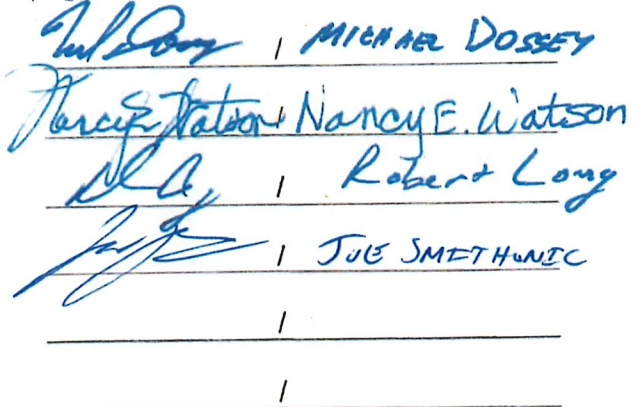 / MICHAEL DOSSEY
Nancy E Watson / Nancy E. Watson
/ Robert Long
/ JOE SMITHONIC
/
/